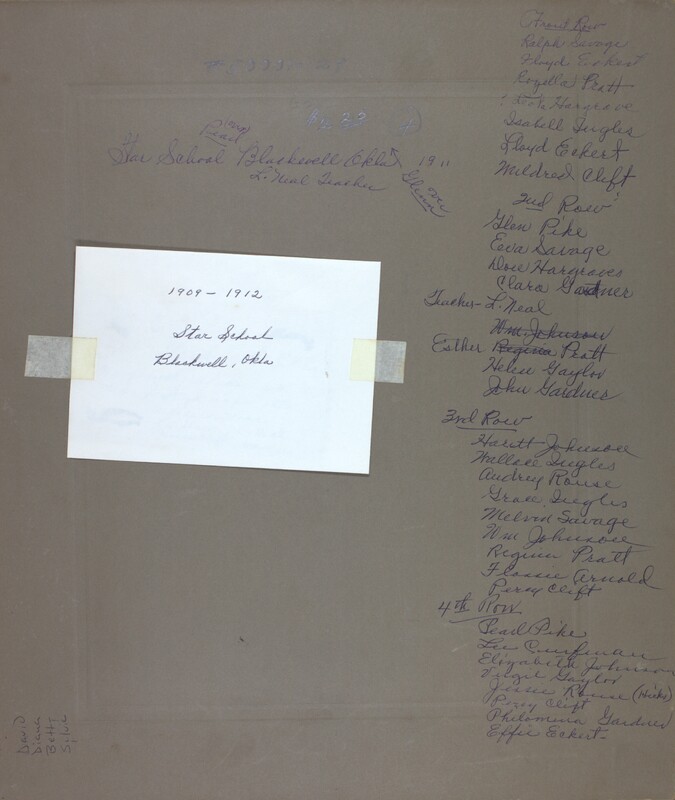 Star School Blackwell Okla 1911
L. Neal Teacher
1909 - 1912
Star School
Blackwell, Okla
Front Row
Ralph Savage
Floyd Eckert
Rozella Pratt
Hargrave
Isabell Ingles
Lloyd Eckert
Mildred Clift
2nd Row
Glen Pike
Eva Savage
Dove Hargraves
Clara Gardner
Teacher - L. Neal
Wm Johnson
Esther Regina Pratt
Helen Gaylor
John Gardner
3rd Row
Harett Johnson
Wallace Ingles
Audrey Rouse
Grace Ingles
Melvin Savage
Wm Johnson
Regina Pratt
Flossie Arnold
Percy Clift
4th Row
Pearl Pike
Elizabeth Johnson
Virgil Gaylor
Rouse (Hicks)
Percy Clift
Philomena Gardner
Effie Eckert
David
Diana
Betty